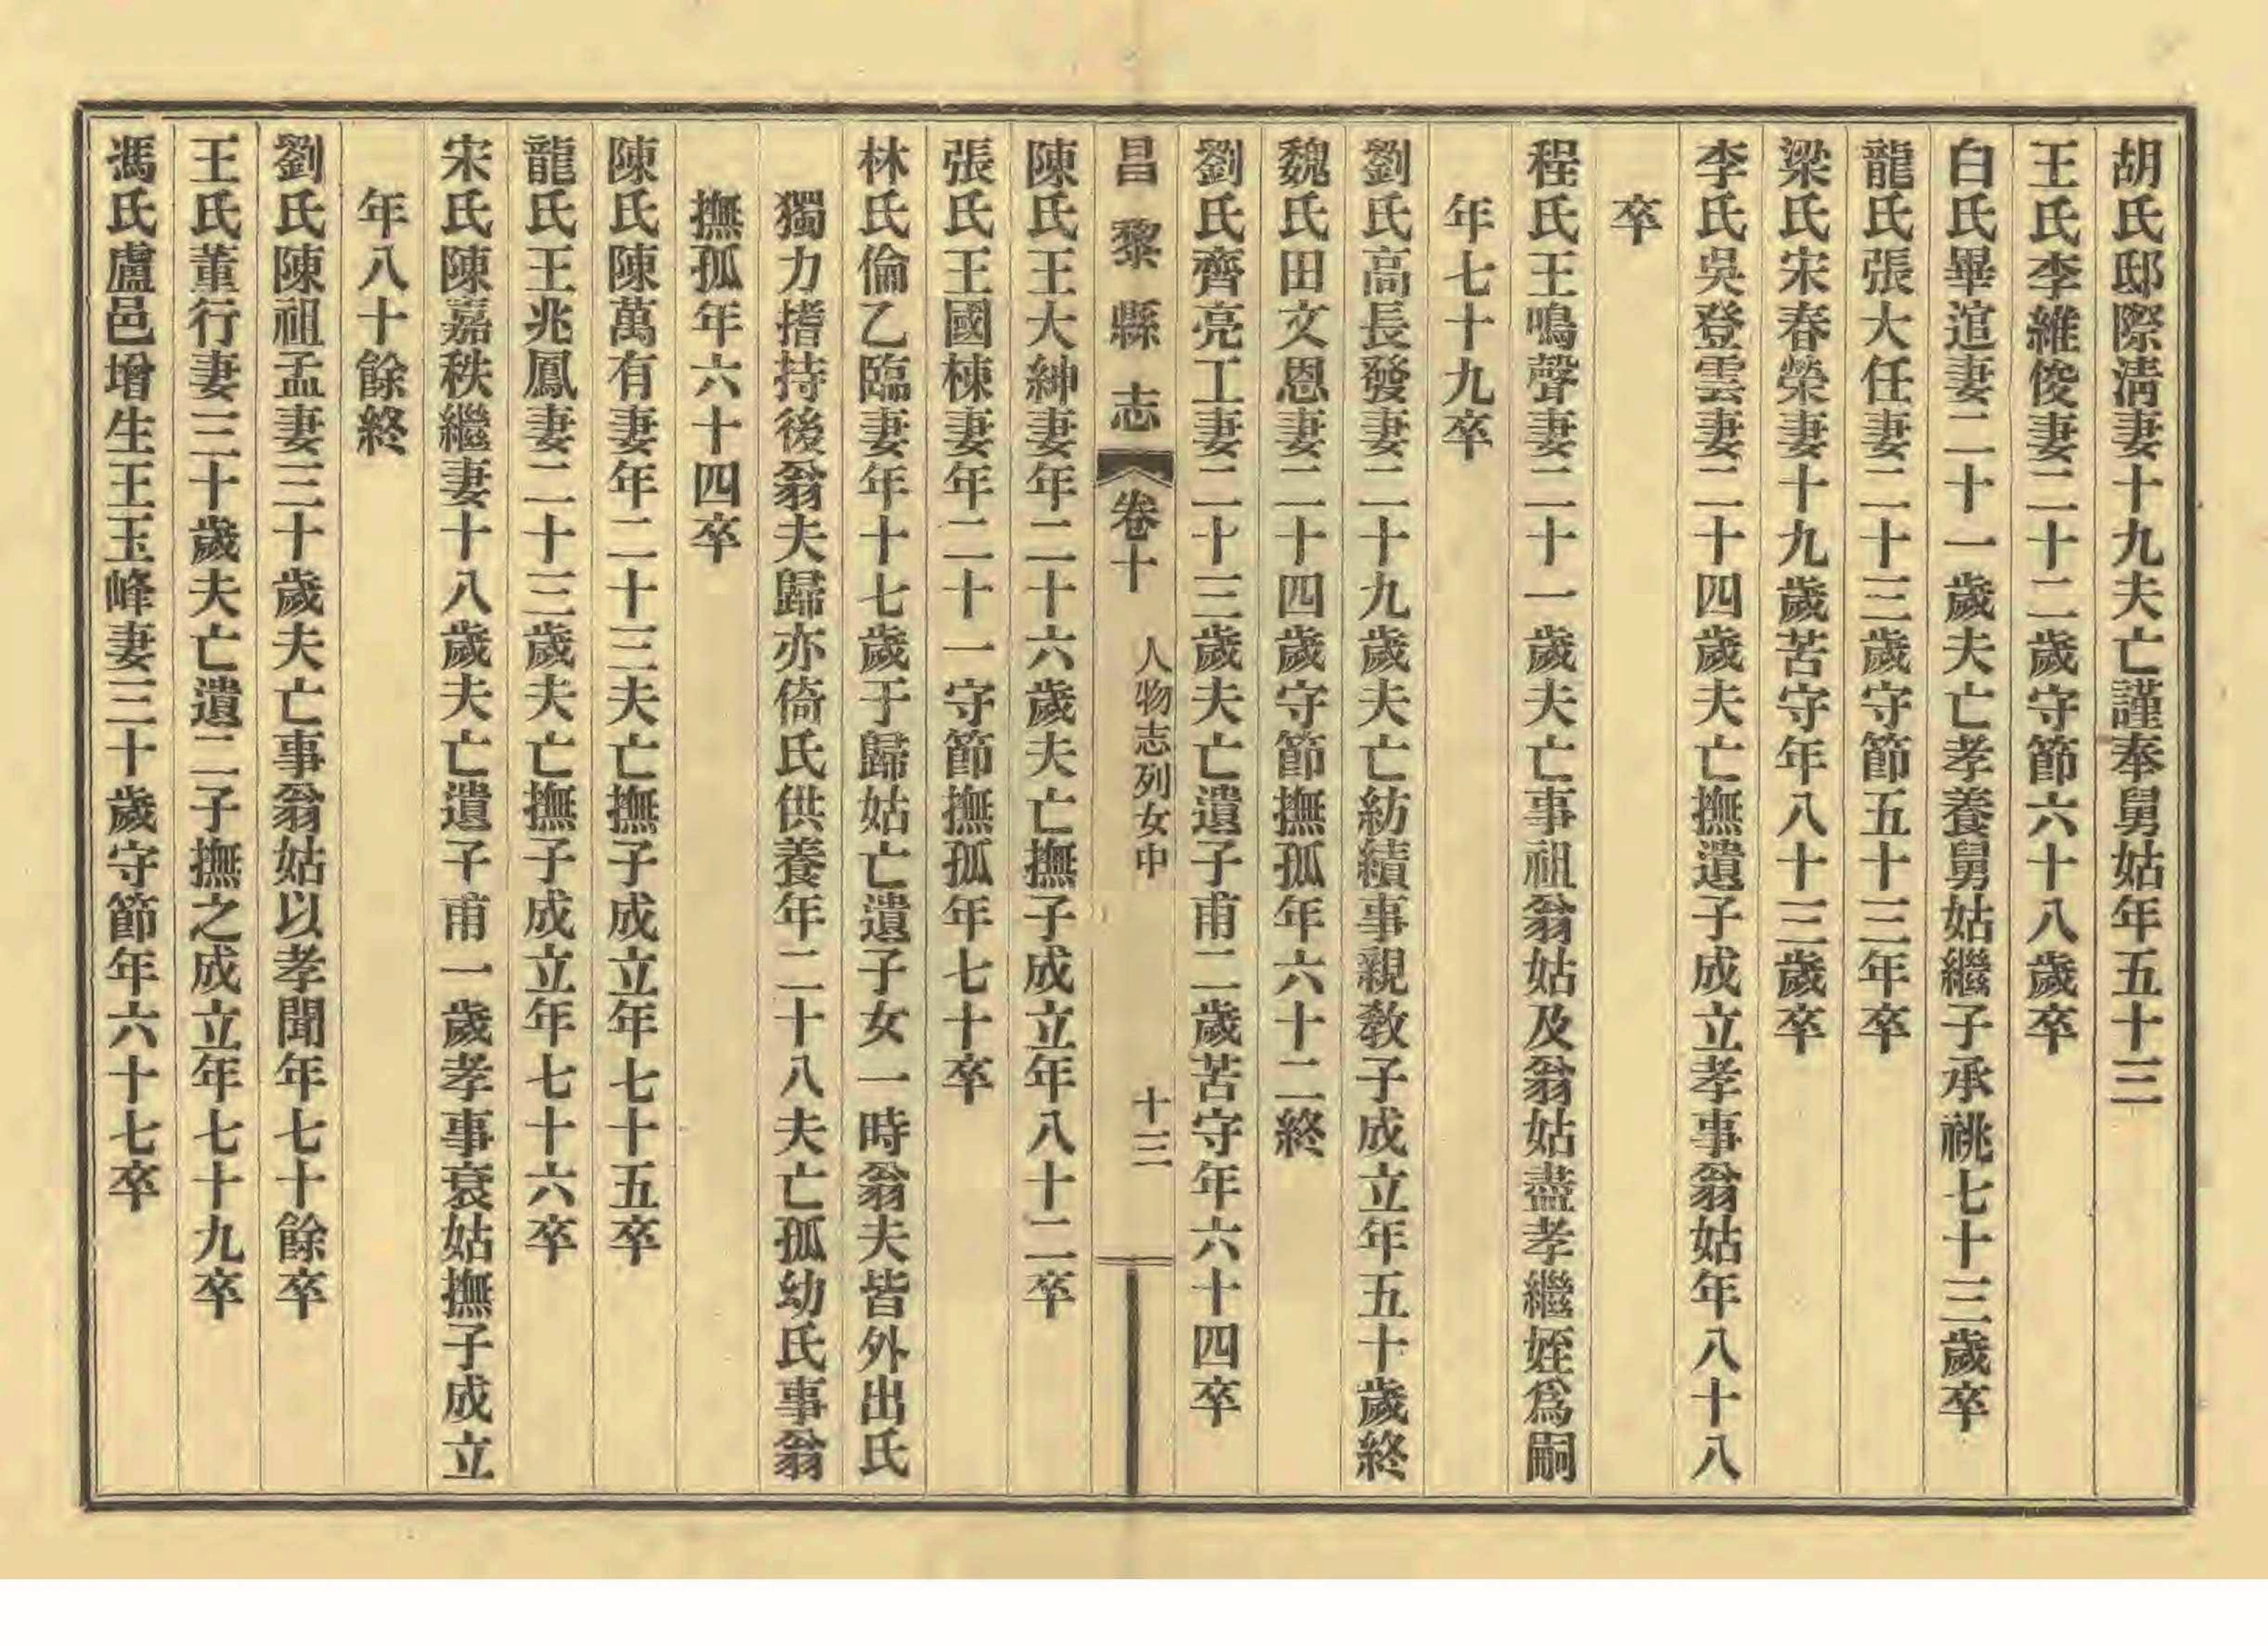 胡氏邸際淸妻十九夫亡謹奉舅姑年五十三
王氏李維俊妻二十二歲守節六十八歲卒
白氏畢逭妻二十一歲夫亡孝養舅姑繼子承祧七十三歲卒
龍氏張大任妻二十三歲守節五十三年卒
梁氏宋春榮妻十九歲苦守年八十三歲卒
李氏吳登雲妻二十四歲夫亡撫遺子成立孝事翁姑年八十八
卒
程氏王鳴聲妻二十一歲夫亡事祖翁姑及翁姑盡孝繼姪爲嗣
年七十九卒
劉氏高長發妻二十九歲夫亡紡績事親敎子成立年五十歲終
魏氏田文恩妻二十四歲守節撫孤年六十二終
劉氏齊亮工妻二十三歲夫亡遺子甫二歲苦守年六十四卒
昌黎縣志 卷十 人物志列女中 十三
陳氏王大紳妻年二十六歲夫亡撫子成立年八十二卒
張氏王國棟妻年二十一守節撫孤年七十卒
林氏倫乙臨妻年十七歲于歸姑亡遺子女一時翁夫皆外出氏
獨力搘持後翁夫歸亦倚氏供養年二十八夫亡孤幼氏事翁
撫孤年六十四卒
陳氏陳萬有妻年二十三夫亡撫子成立年七十五卒
龍氏王兆鳳妻二十三歲夫亡撫子成立年七十六卒
宋氏陳嘉秩繼妻十八歲夫亡遺子甫一歲孝事衰姑撫子成立
年八十餘終
劉氏陳祖孟妻三十歲夫亡事翁姑以孝聞年七十餘卒
王氏董行妻三十歲夫亡遺二子撫之成立年七十九卒
馮氏盧邑增生王玉峰妻三十歲守節年六十七卒